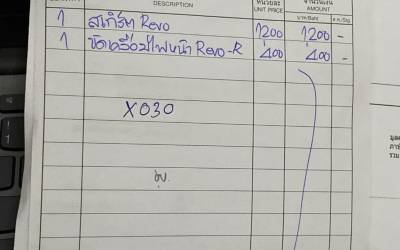 DESCRIPTION หน่วยละ UNIT PRICE จำนวนเงิน AMOUNT
บาท/Baht ส.ต./Stg
1 สเกิร์ต Revo 1200 1200 -
1 ไฟหน้า Revo-R 400 400 -
X030